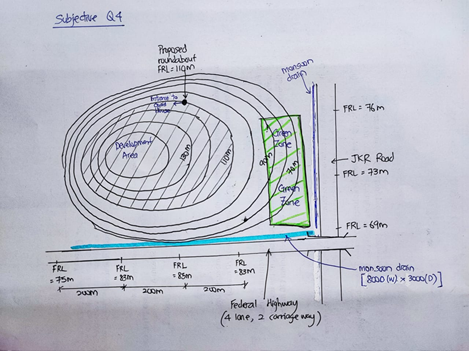 Subjective Q4
Proposed
roundabout
FRL = 110m
monsoon
drain
Entrance to
House
FRL = 76m
Green
Zone
Development
Area
110m
90m
JKR Road
FRL = 73m
Green
Zone
FRL = 69m
FRL
= 75m
FRL
= 83m
FRL
= 83m
FRL
= 83m
200m
200m
200m
monsoon
drain
[8000(W) x 3000(D)]
Federal Highway
(4 lane, 2 carriageway)